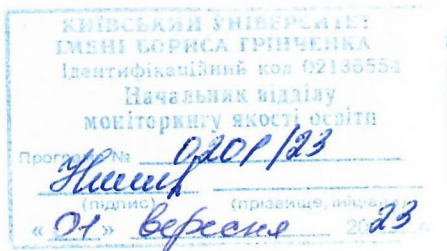 КИЇВСЬКИЙ УНІВЕРСИТЕТ
ІМЕНІ БОРИСА ГРІНЧЕНКА
Ідентифікаційний код 02136554
Начальник відділу
моніторингу якості освіти
Програма № 0201/23
(підпис) (прізвище,
« 01 » вересня 2023